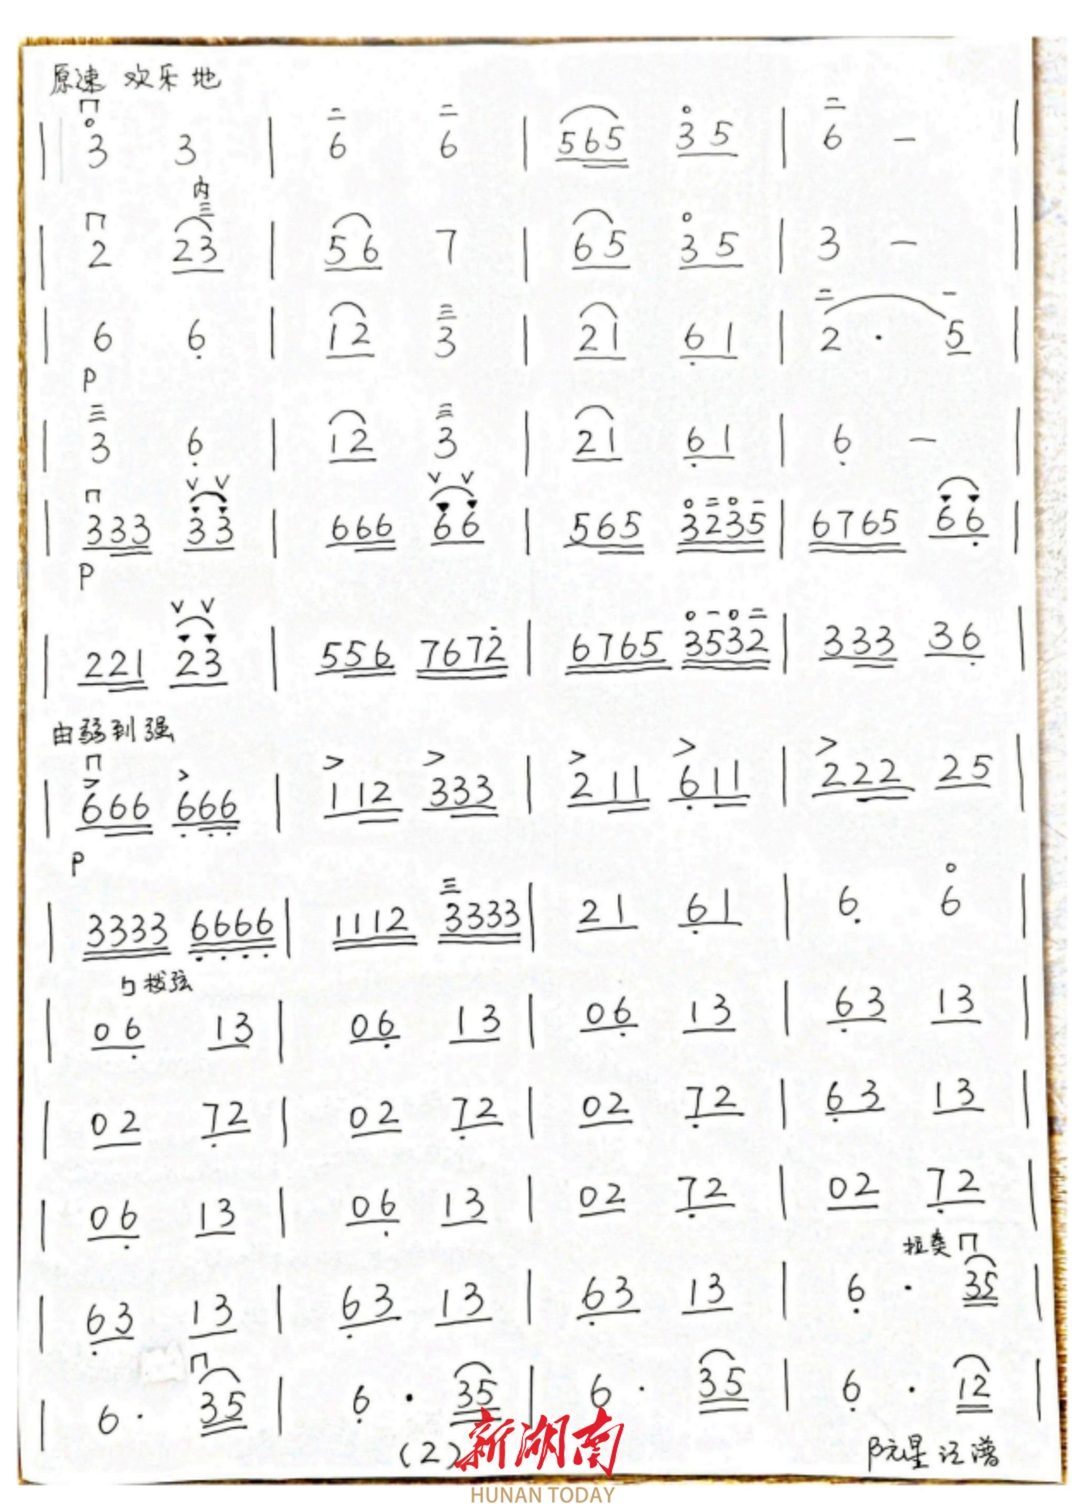 原速 欢乐地
| 3 3 | 6 6 | 565 35 | 6 - |
内
| 2 23 | 56 7 | 65 35 | 3 - |
| 6 6 | 12 3 | 21 61 | 2 · 5 |
P
| 3 6 | 12 3 | 21 61 | 6 - |
| 333 33 | 666 66 | 565 3235 | 6765 66 |
P
| 221 23 | 556 7672 | 6765 3532 | 333 36 |
由弱到强
| 666 666 | 112 333 | 211 611 | 222 25 |
P
| 3333 6666 | 1112 3333 | 21 61 | 6 6 |
拨弦
| 06 13 | 06 13 | 06 13 | 63 13 |
| 02 72 | 02 72 | 02 72 | 63 13 |
| 06 13 | 06 13 | 02 72 | 02 72 |
拉奏
| 63 13 | 63 13 | 63 13 | 6 · 35 |
| 6 · 35 | 6 · 35 | 6 · 35 | 6 · 12 |
(2)
新湖南
HUNAN TODAY